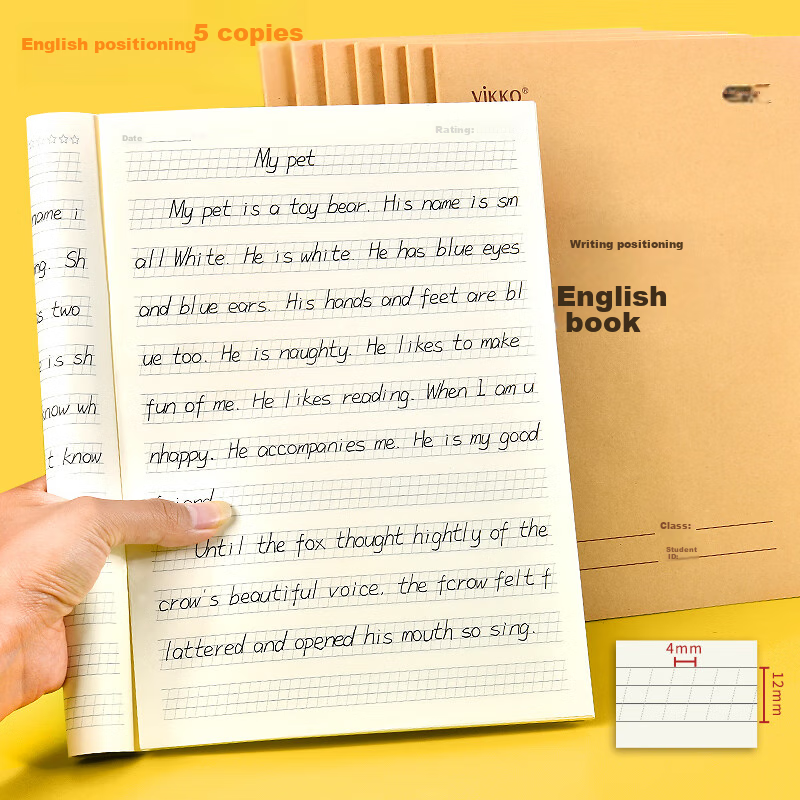 English positioning 5 copies
VIKKO®
Writing positioning
English
book
Class:
Student
ID:
Date
Rating:
My pet
My pet is a toy bear. His name is sm
all White. He is white. He has blue eyes
and blue ears. His hands and feet are bl
ue too. He is naughty. He likes to make
fun of me. He likes reading. When I am u
nhappy. He accompanies me. He is my good
friend
Until the fox thought hightly of the
crow's beautiful voice. the fcrow felt f
lattered and opened his mouth so sing.
name i
ng. Sh
s two
is sh
know wh
t know
4mm
12mm